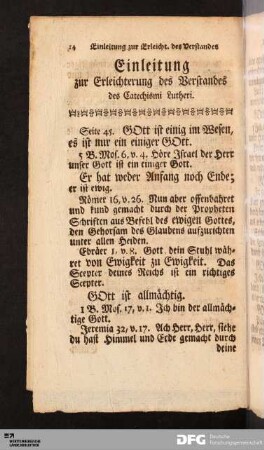 14 Einleitung zur Erleicht. des Verstandes
Einleitung
zur Erleichterung des Verstandes
des Catechismi Lutheri.
Seite 45. GOtt ist einig im Wesen,
es ist nur ein einiger GOtt.
5 B. Mos. 6, v. 4. Höre Israel der Herr
unser Gott ist ein einiger Gott.
Er hat weder Anfang noch Ende;
er ist ewig.
Römer 16, v. 26. Nun aber offenbahret
und kund gemacht durch der Propheten
Schriften aus Befehl des ewigen Gottes,
den Gehorsam des Glaubens aufzurichten
unter allen Heiden.
Ebräer 1. v. 8. Gott dein Stuhl wäh-
ret von Ewigkeit zu Ewigkeit. Das
Scepter deines Reichs ist ein richtiges
Scepter.
GOtt ist allmächtig.
1 B. Mos. 17, v. 1. Ich bin der allmäch-
tige Gott.
Jeremia 32, v. 17. Ach Herr, Herr, siehe
du hast Himmel und Erde gemacht durch
deine
DFG Deutsche
Forschungsgemeinschaft